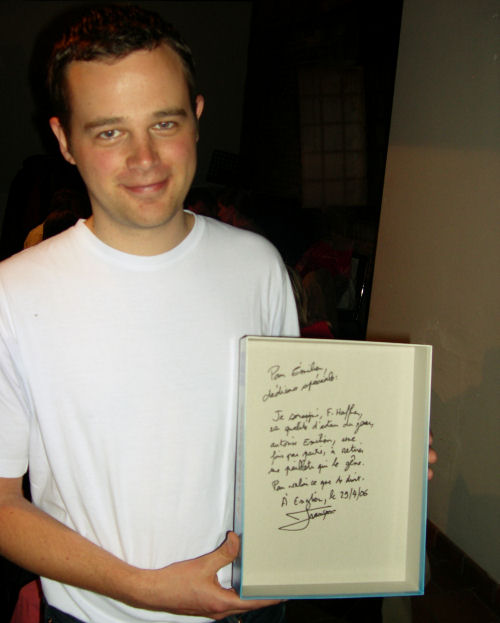 Pour Émilien,
dédicace spéciale:
Je soussigné, F. Haffner,
en qualité d'auteur du jeu,
autorise Émilien, une
fois par partie, à retirer
une paillote qui le gêne.
Pour valoir ce que de droit.
À Enghien, le 29/4/06